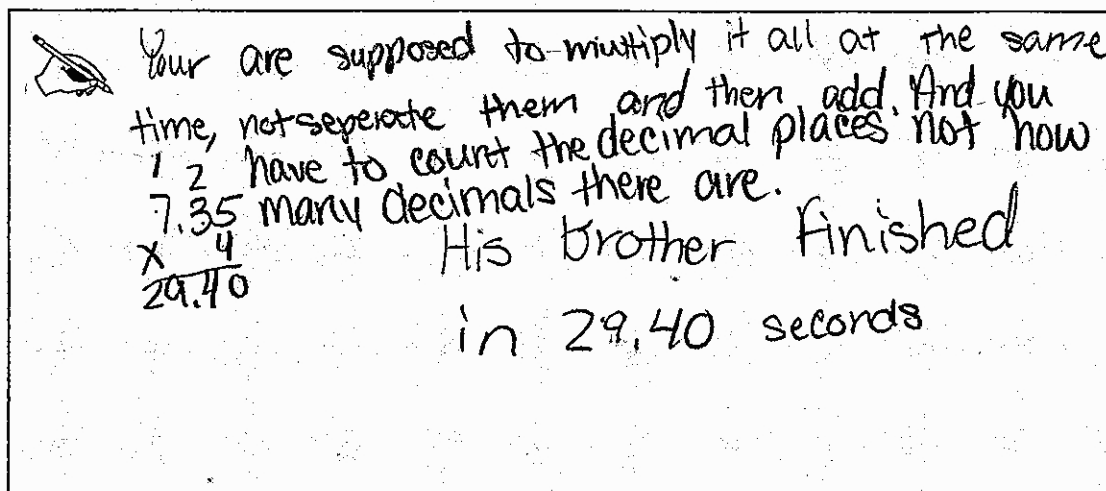 Your are supposed to miultiply it all at the same
time, not seperate them and then add. And you
1 2 have to count the decimal places not how
7.35 many decimals there are.
x 4 His brother finished
29.40
in 29.40 seconds